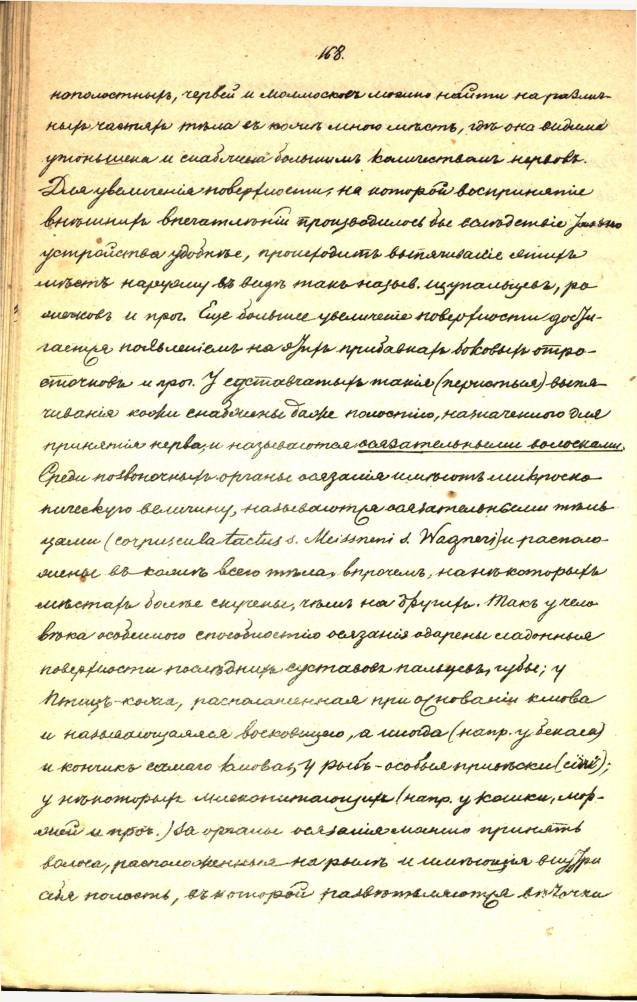 168.
нополостныхъ, червей и моллюсковъ можно найти на различ-
ныхъ частяхъ тѣла въ кожѣ много мѣстъ, гдѣ она видимо
утоньшена и снабжена большимъ количествомъ нервовъ.
Для увеличенія поверхности, на которой воспринятіе
внѣшнихъ впечатлѣній производилось бы вслѣдствіе
устройства удобнѣе, происходитъ выпячиваніе этихъ
мѣстъ наружу въ видѣ такъ назыв. щупальцевъ, ро
жковъ и проч. Еще большее увеличеніе поверхности дости-
гается появленіемъ на этихъ прибавкахъ боковыхъ отро-
сточковъ и проч. У суставчатыхъ такія (перистыя) выпя
чиванія кожи снабжены даже полостію, назначенною для
принятія нерва, и называются осязательными волосками.
Среди позвоночныхъ органы осязанія имѣютъ микроско
пическую величину, называются осязательными тѣль
цами (corpuscula tactus s. Meissneri s. Wagneri) и располо-
жены въ кожѣ всего тѣла, впрочемъ, на нѣкоторыхъ
мѣстахъ болѣе скучены, чѣмъ на другихъ. Такъ у чело
вѣка особенною способностію осязанія одарены ладонныя
поверхности послѣднихъ суставовъ пальцевъ, губы; у
Птицъ - кожа, расположенная при основаніи клюва
и называющаяся восковицею, а иногда (напр. у бекаса)
и кончикъ самаго клюва; у рыбъ - особыя привѣски (cirri);
у нѣкоторыхъ млекопитающихъ (напр. у кошки, мор-
жей и проч.) за органы осязанія можно принять
волоса, расположенные на рылѣ и имѣющія внутри
себя полость, въ которой развѣтвляются вѣточки